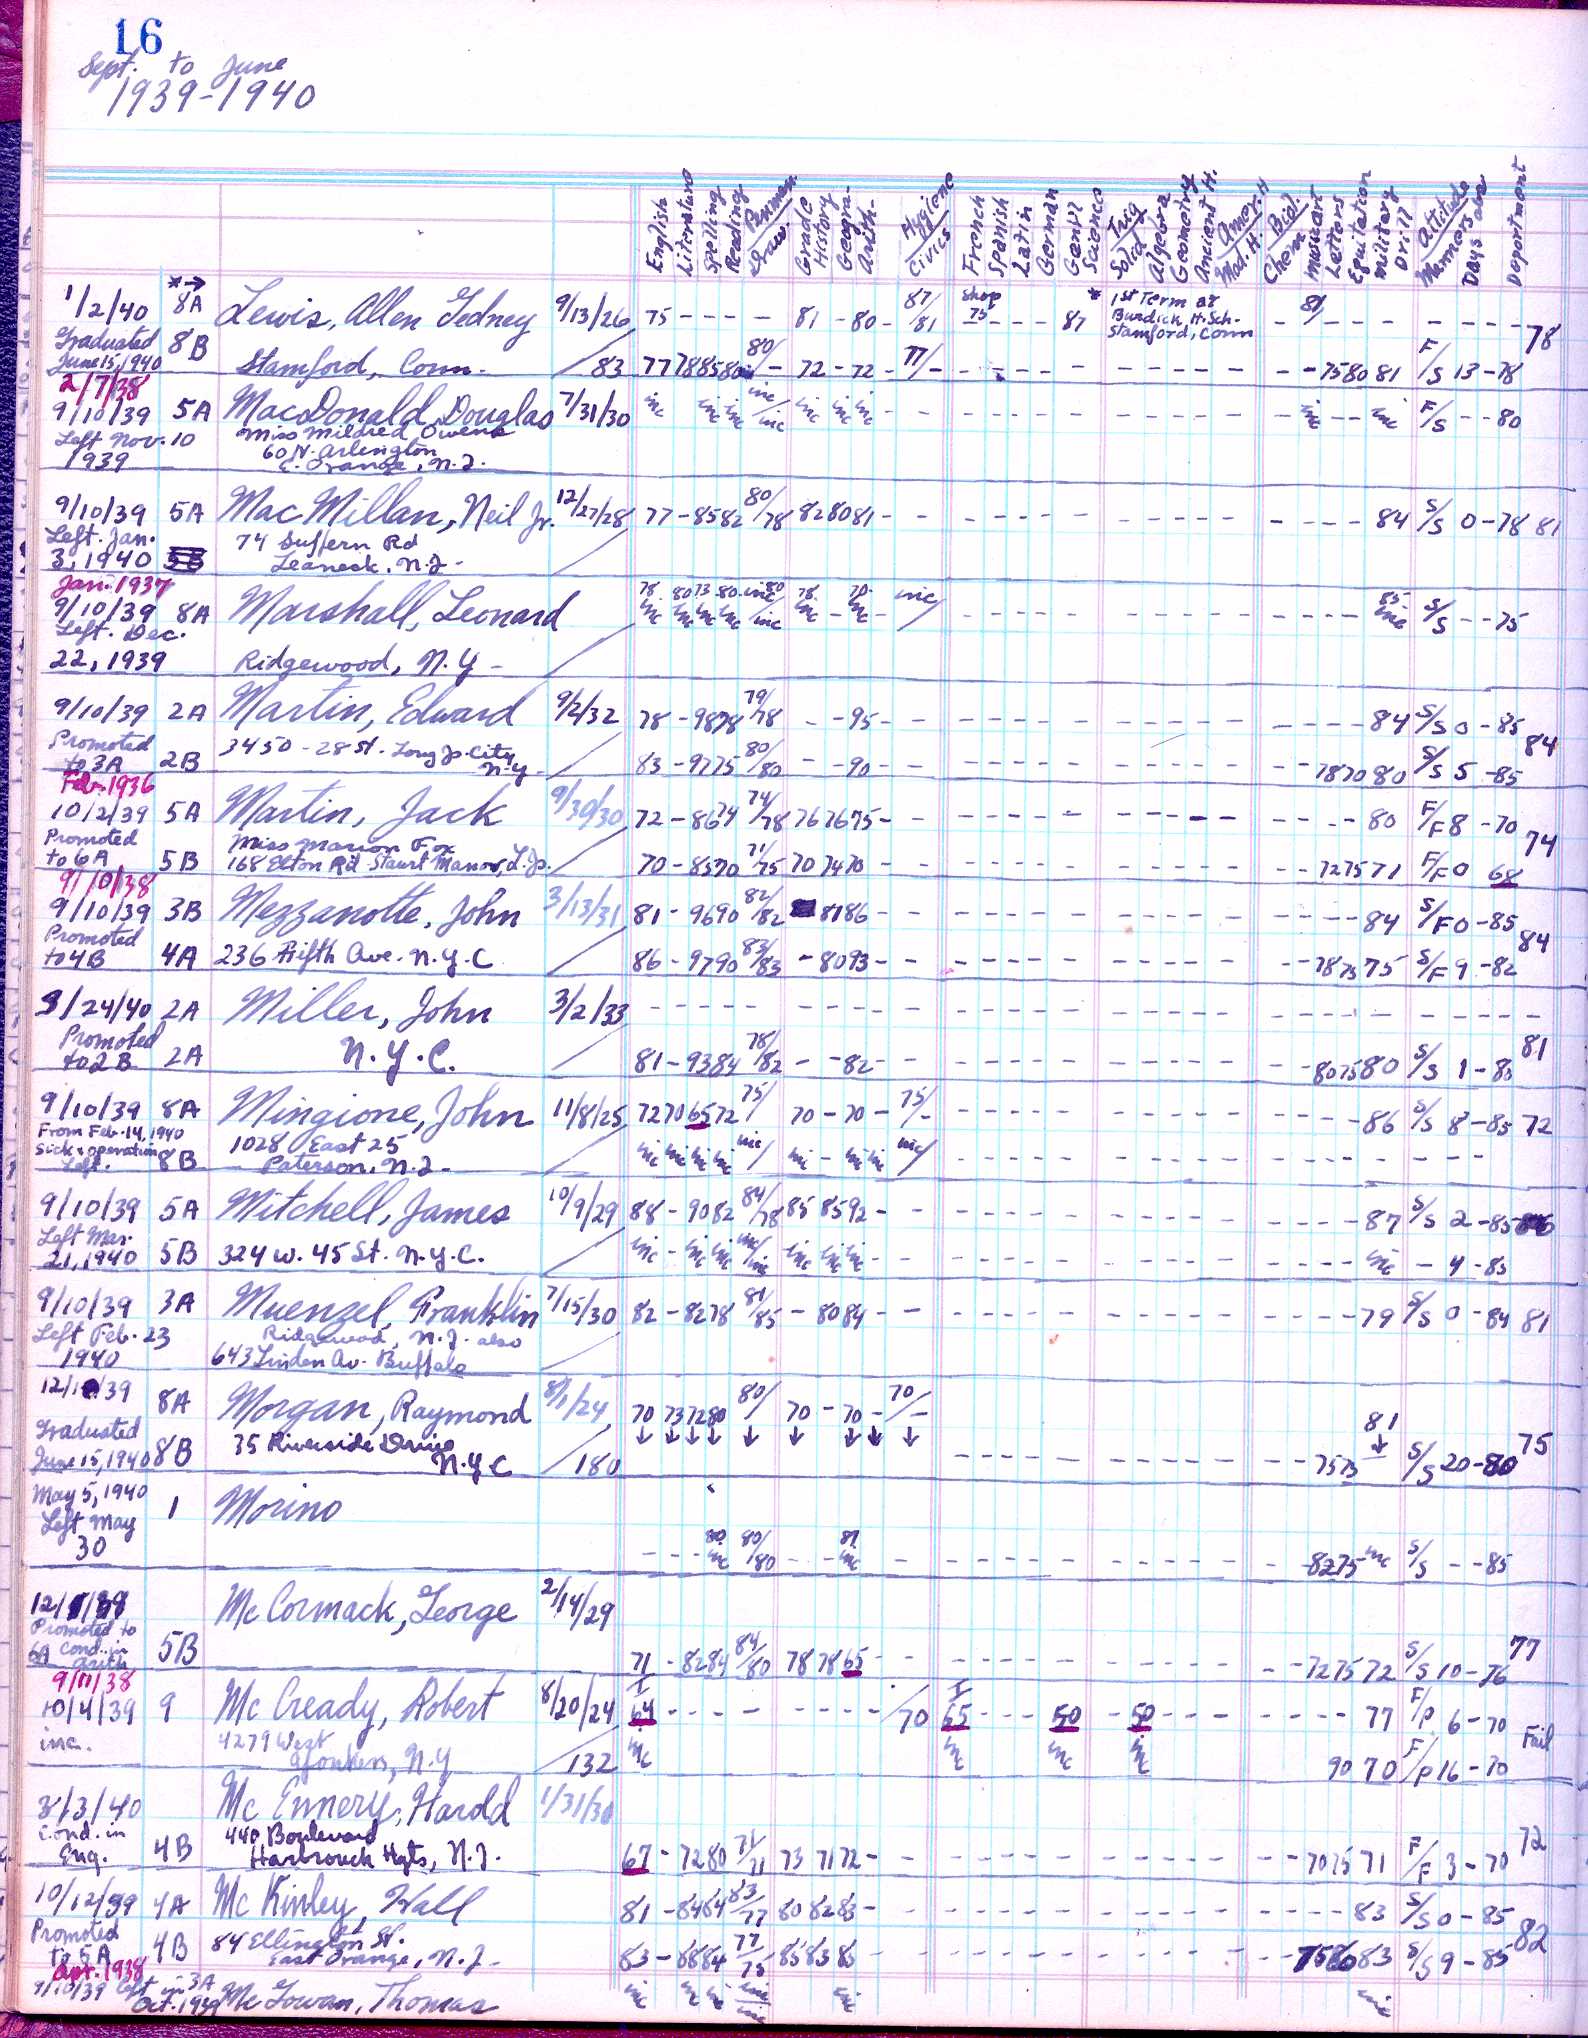 16
Sept. to June
1939-1940
English Literature Spelling Reading Penman. Draw. Grade History Geogra- Arith- Hygiene Civics French Spanish Latin German Gen'l Science Trig Solid Algebra Geometry Ancient H. Amer. H Mod. H. Biol. Chem Letters Equitation Military Drill Attitude Manners Days Deportment
* →
1/2/40 8A Lewis, Allen Gedney 9/13/26 75 - - - - 81 - 80 - 87/81 Shop 75 - - - 87 * 1st Term at Burdick H. Sch- Stamford, Conn 81/ - - - - - - - 78
Graduated June 15, 1940 8B Stamford, Conn. /83 77 78 85 80 80/ - 72 - 72 - 77/- - - - - - - - - - - - - 75 80 81 F/S 13 - 78
2/7/38
9/10/39 5A MacDonald, Douglas 7/31/30 inc inc inc inc/inc inc inc inc - - - - - - - - - - - - - inc - - inc F/S - - 80
Left Nov. 10 Miss Mildred Owens
1939 60 N. Arlington
E. Orange, N.J.
9/10/39 5A MacMillan, Neil Jr. 12/27/28 77 - 85 82 80/78 82 80 81 - - - - - - - - - - - - - - - - 84 S/S 0 - 78 81
Left. Jan. 74 Suffern Rd
3, 1940 5B Teaneck, N.J-
Jan. 1937 78. 80 73 80. inc 80 78. 70. inc/ 85.
9/10/39 8A Marshall, Leonard inc inc inc inc /inc inc - inc - - - - - - - - - - - - - - - inc S/S - - 75
Left. Dec.
22, 1939 Ridgewood, N.Y-
9/10/39 2A Martin, Edward 9/2/32 78 - 98 78 79/78 - - 95 - - - - - - - - - - - - - - - - 84 S/S 0 - 85 84
Promoted to 3A 2B 3450-28 St. Long Is. City N.Y- 83 - 97 75 80/80 - - 90 - - - - - - - - - - - - - - 78 70 80 S/S 5 - 85
Feb. 1936
10/2/39 5A Martin, Jack 9/30/30 72 - 86 74 74/78 76 76 75 - - - - - - - - - - - - - - - - 80 F/F 8 - 70 74
Promoted Miss Marion Fox
to 6A 5B 168 Elton Rd Stewart Manor, L. Is. 70 - 85 70 71/75 70 74 70 - - - - - - - - - - - - - - 72 75 71 F/F 0 68
9/10/38
9/10/39 3B Mezzanotte, John 3/13/31 81 - 96 90 82/82 81 86 - - - - - - - - - - - - - - - - 84 S/F 0 - 85 84
Promoted
to 4B 4A 236 Fifth Ave. N.Y.C 86 - 97 90 83/83 - 80 93 - - - - - - - - - - - - - - 78 75 75 S/F 9 - 82
3/24/40 2A Miller, John 3/2/33 - - - - - - - - - - - - - - - - - - - - - - - - - - - -
Promoted
to 2B 2A N.Y.C. 81 - 93 84 78/82 - - 82 - - - - - - - - - - - - - - 80 75 80 S/S 1 - 80 81
9/10/39 8A Mingione, John 11/8/25 72 70 65 72 75/ 70 - 70 - 75/- - - - - - - - - - - - - - - 86 S/S 8 - 85 72
From Feb. 14, 1940 1028 East 25
Sick & operation
Left. 8B Paterson, N.J- inc inc inc inc inc/ inc - inc inc inc/ - - - - - - - - - - - - - - - - - -
9/10/39 5A Mitchell, James 10/9/29 88 - 90 82 84/78 85 85 92 - - - - - - - - - - - - - - - - 87 S/S 2 - 85
Left Mar.
21, 1940 5B 324 W. 45 St. N.Y.C. inc - inc inc inc/inc inc inc inc - - - - - - - - - - - - - - - - inc - 4 - 85
9/10/39 3A Muenzel, Franklin 7/15/30 82 - 82 78 81/85 - 80 84 - - - - - - - - - - - - - - - - 79 S/S 0 - 84 81
Left Feb. 23 Ridgewood, N.J. also
1940 643 Linden Av. Buffalo
12/1/39 8A Morgan, Raymond 8/1/24 70 73 72 80 80/ 70 - 70 - 70/- 81
Graduated 35 Riverside Drive ↓ ↓ ↓ ↓ ↓ ↓ ↓ ↓ ↓ ↓
June 15, 1940 8B N.Y.C /180 - - - - - - - - - - - - - 75 75 - S/S 20 - 80 75
May 5, 1940 1 Morino
Left May
30 - - - 80. inc 80/80 - - 87. inc - - - - - - - - - - - - - - 82 75 inc S/S - - 85
12/1/39 McCormack, George 2/14/29
Promoted to
6A Cond. in
Arith 5B 71 - 82 84 84/80 78 78 65 - - 72 75 72 S/S 10 - 76 77
9/11/38
10/4/39 9 McCready, Robert 8/20/24 64 - - - - - - - - /70 65 - - - 50 - 50 - - - - - - - - 77 F/P 6 - 70 Fail
inc. 4279 West
Yonkers, N.Y /132 inc inc inc inc 90 70 F/P 16 - 70
3/3/40 McEnnery, Harold 1/31/30
Cond. in 440 Boulevard
Eng. 4B Hasbrouck Hgts, N.J. 67 - 72 80 71/71 73 71 72 - - - - - - - - - - - - - - 70 75 71 F/F 3 - 70 72
10/12/39 4A McKinley, Hall 81 - 84 84 83/77 80 82 83 - - - - - - - - - - - - - - - 83 S/S 0 - 85 82
Promoted 84 Ellington St.
to 5A 4B East Orange, N.J- 83 - 88 84 77/75 85 83 85 - - - - - - - - - - - - - 75 80 83 S/S 9 - 85
Apr. 1938
9/10/39 left in 3A Oct. 1939 McGowan, Thomas inc inc inc inc/inc inc inc